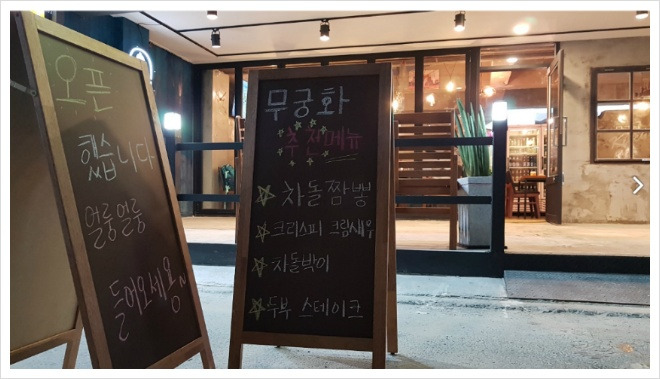 오픈
했습니다
얼룽얼룽
들어오세용~
무궁화
추천메뉴
차돌짬뽕
크리스피 크림새우
차돌박이
두부 스테이크